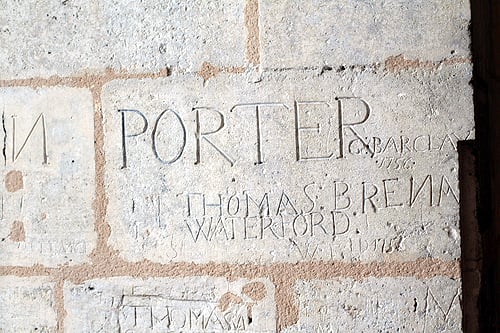 PORTER
G. BARCLAY
1756
THOMAS. BRENA
WATERFORD
THOMAS